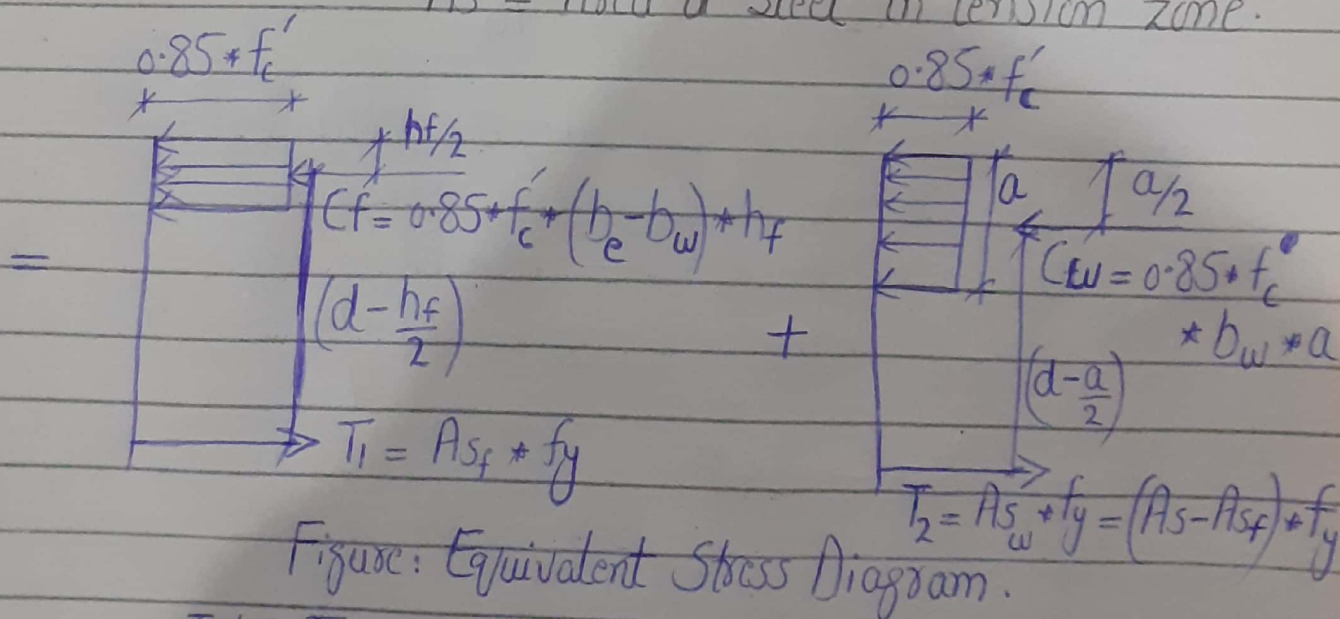 As = Area of steel in tension zone.
0.85*fc'
hf/2
Cf = 0.85*fc'*(be-bw)*hf
(d-hf/2)
T1 = Asf * fy
=
+
0.85*fc'
a
a/2
Cw = 0.85*fc'
*bw*a
(d-a/2)
T2 = Asw*fy = (As-Asf)*fy
Figure: Equivalent Stress Diagram.